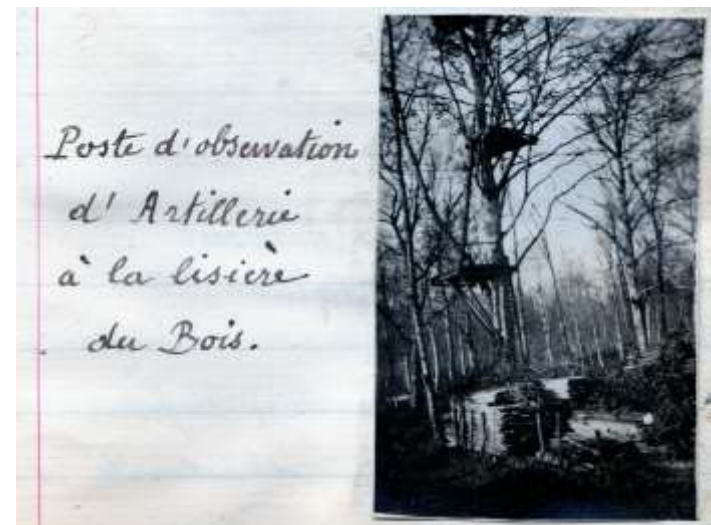 Poste d'observation
d'Artillerie
à la lisière
du Bois.